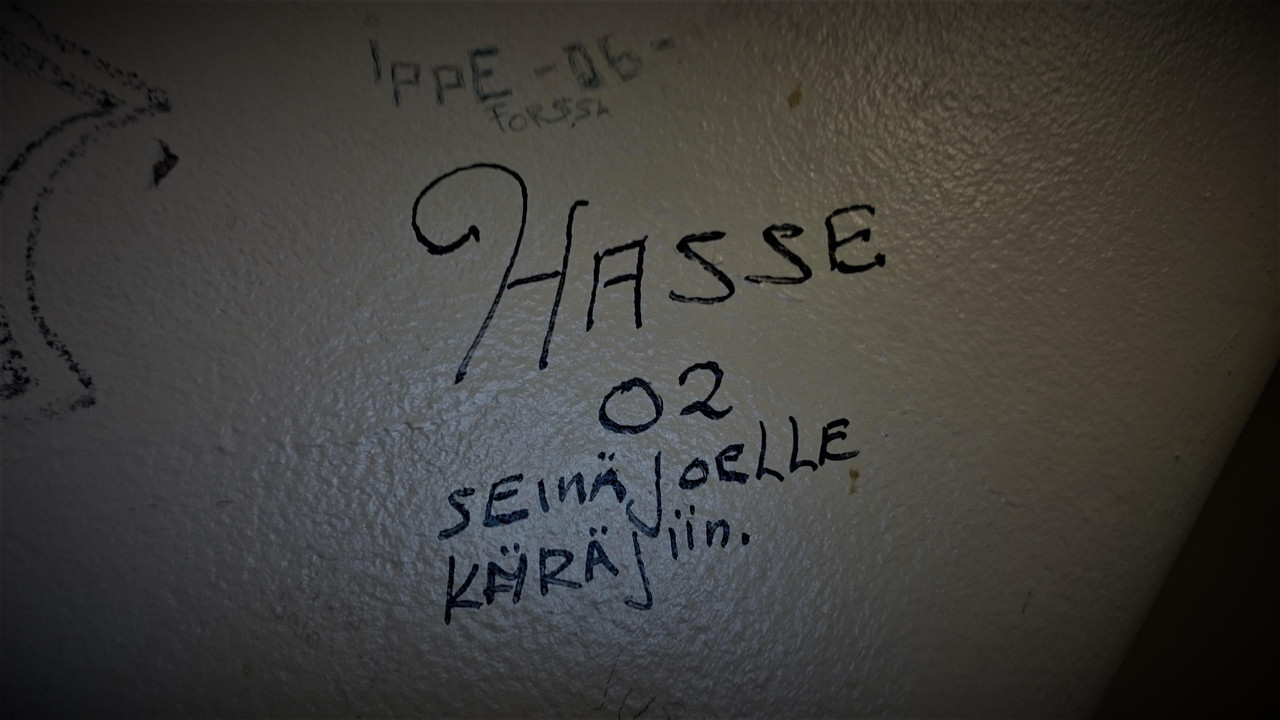 IPPE -06-
FORSSA
HASSE
02
SEINÄJOELLE
KÄRÄJIIN.